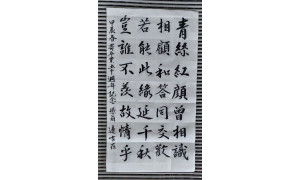 青絲紅顏曾相識
相顧和答同交歡
若能此緣延千秋
豈誰不羨故情乎
甲辰春